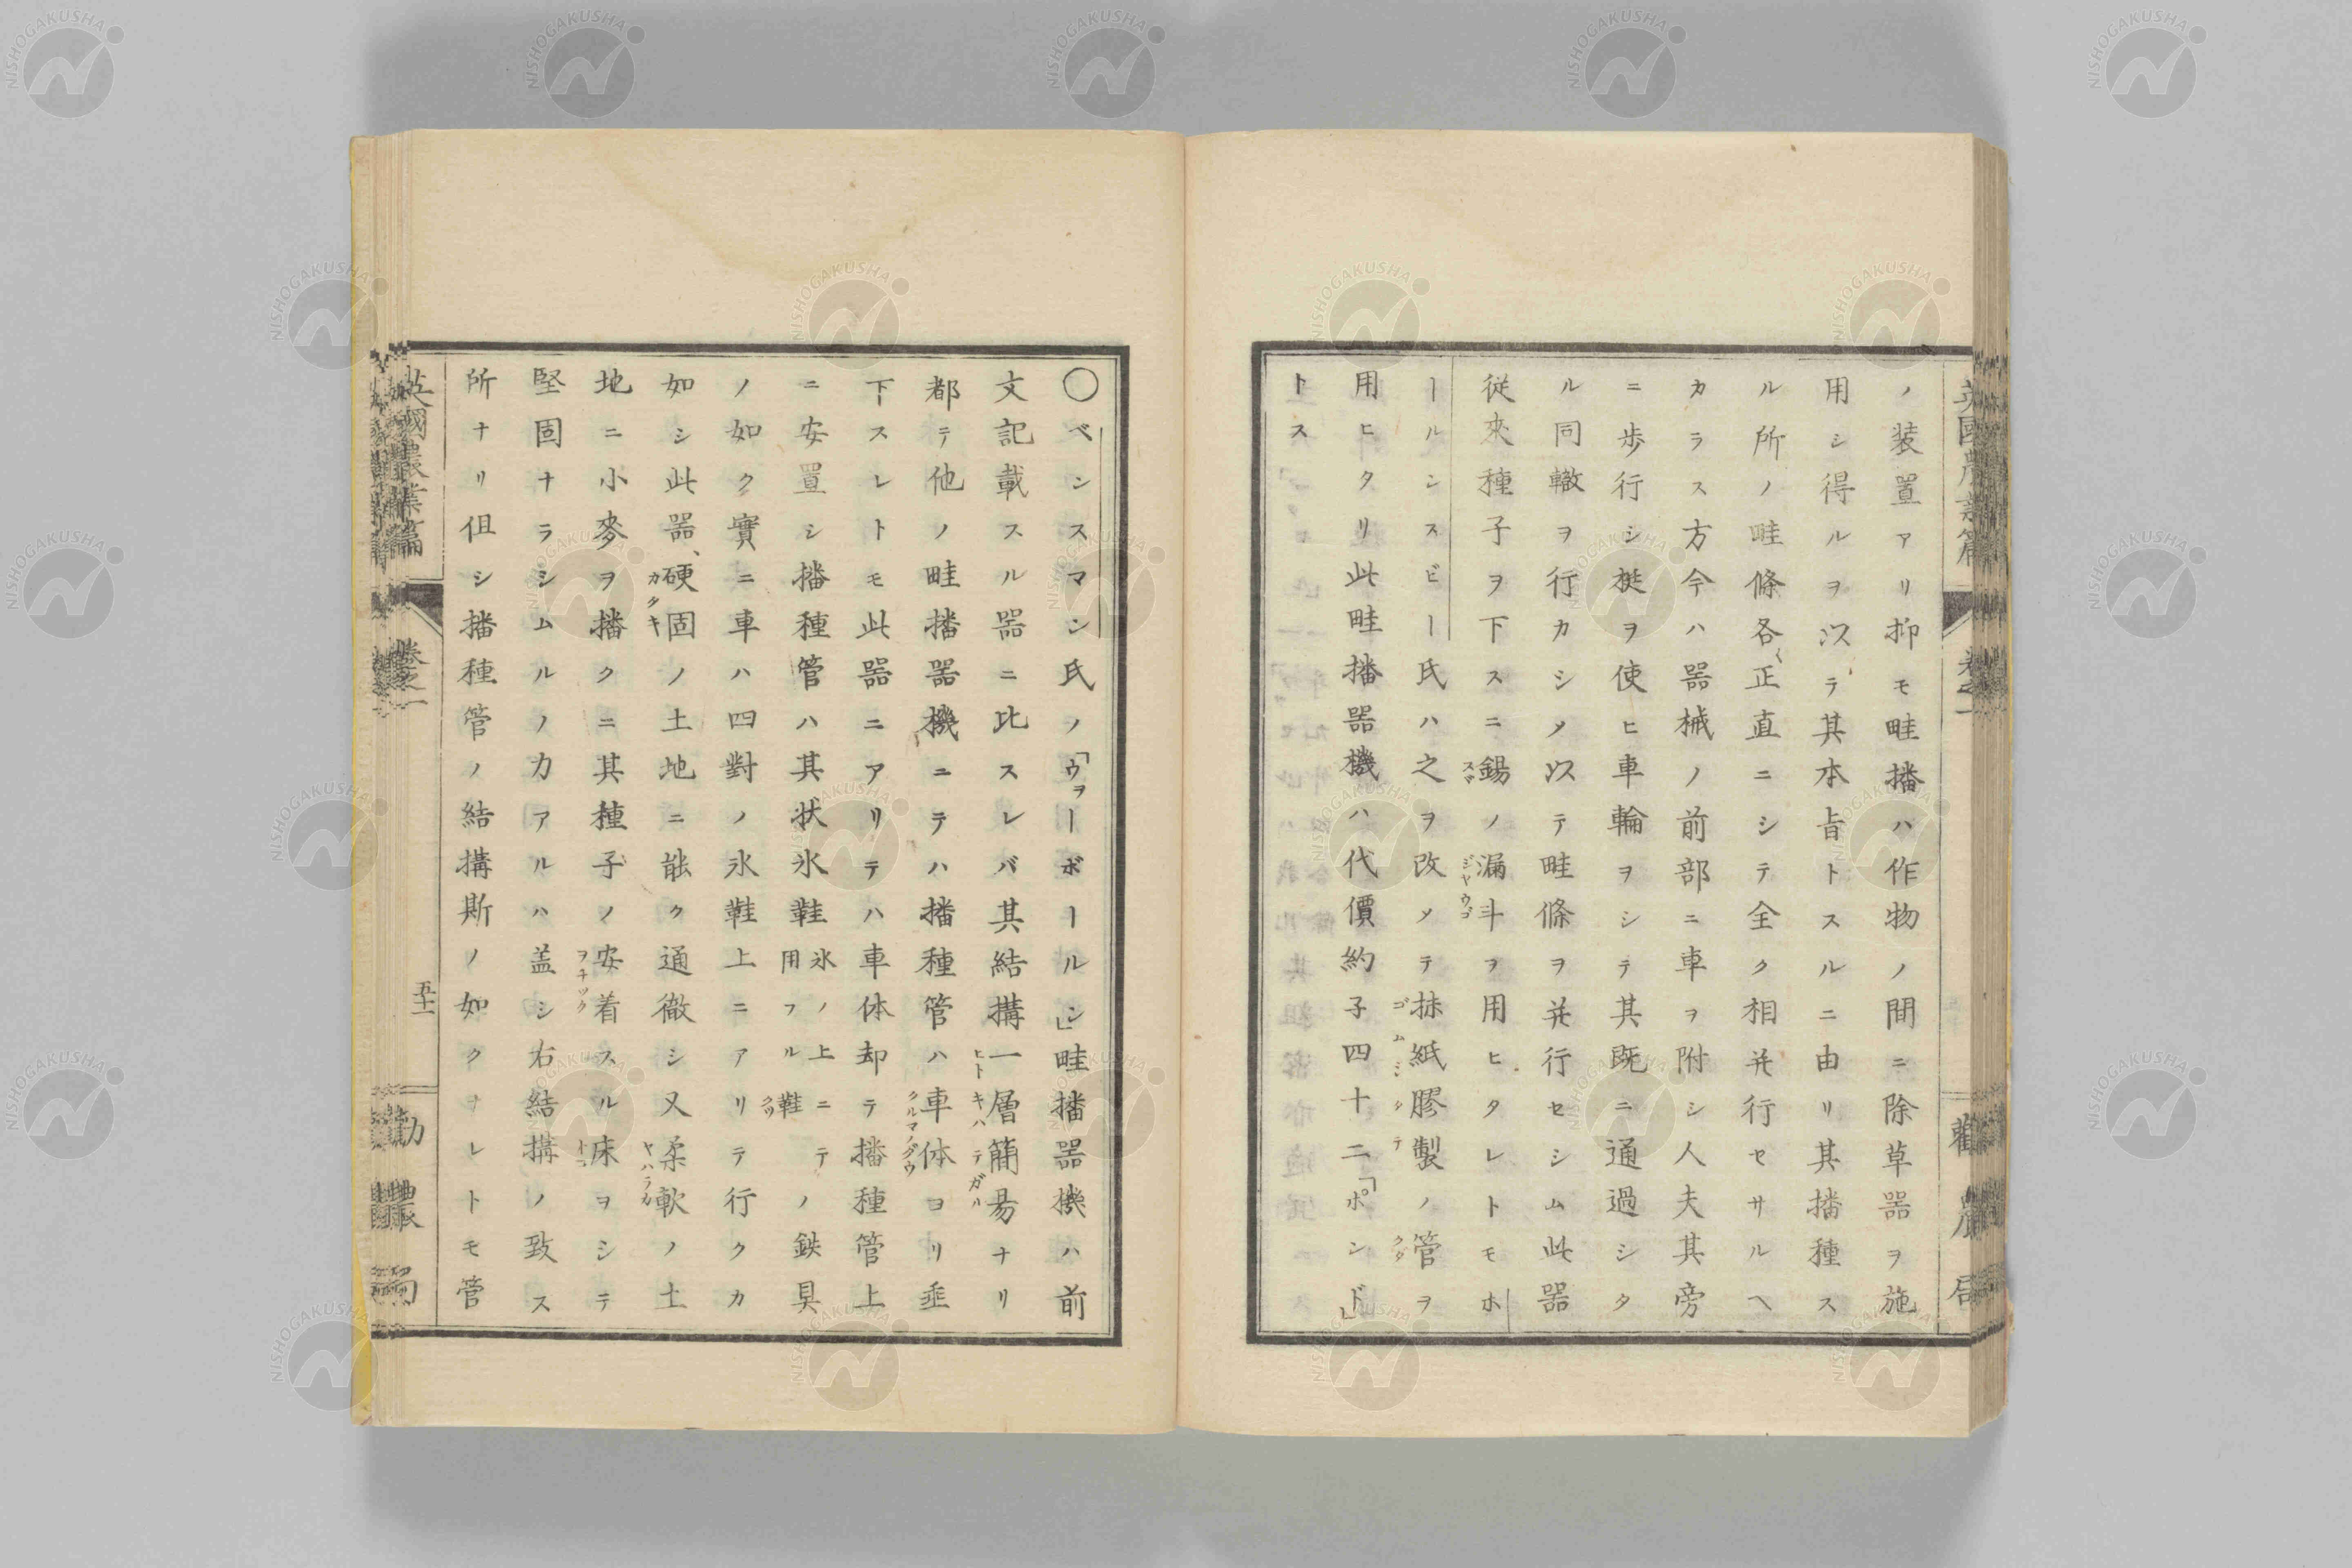 ノ装置アリ抑モ畦播ハ作物ノ間ニ除草器ヲ施
用シ得ルヲ以テ其本旨トスルニ由リ其播種ス
ル所ノ畦條各〻正直ニシテ全ク相幷行セサルヘ
カラス方今ハ器械ノ前部ニ車ヲ附シ人夫其旁
ニ歩行シ梃ヲ使ヒ車輪ヲシテ其既ニ通過シタ
ル同轍ヲ行カシメ以テ畦條ヲ幷行セシム此器
従來種子ヲ下スニ錫ノ漏斗ヲ用ヒタレトモホ
スヾ
ジヤウゴ
ールンスビー氏ハ之ヲ改メテ抹紙膠製ノ管ヲ
ゴムシタテ
クダ
用ヒタリ此畦播器機ハ代價約子四十二「ポンド」
トス
〇ベンスマン氏ノ「ウヲーボールン」畦播器機ハ前
文記載スル器ニ比スレバ其結搆一層簡昜ナリ
ヒトキハテガル
都テ他ノ畦播器機ニテハ播種管ハ車体ヨリ垂
クルマノダウ
下スレトモ此器ニアリテハ車体却テ播種管上
ニ安置シ播種管ハ其状氷鞋氷ノ上ニテ用フル鞋ノ鉄具
クツ
ノ如ク實ニ車ハ四對ノ氷鞋上ニアリテ行クカ
如シ此器、硬固ノ土地ニ能ク通徹シ又柔軟ノ土
カタキ
ヤハラカ
地ニ小麥ヲ播クニ其種子ノ安着スル床ヲシテ
ヲチツク
トコ
堅固ナラシムルノ力アルハ盖シ右結搆ノ致ス
所ナリ伹シ播種管ノ結搆斯ノ如クナレトモ管
英國農業篇
卷之一
五十一
勸農局
NISHOGAKUSHA